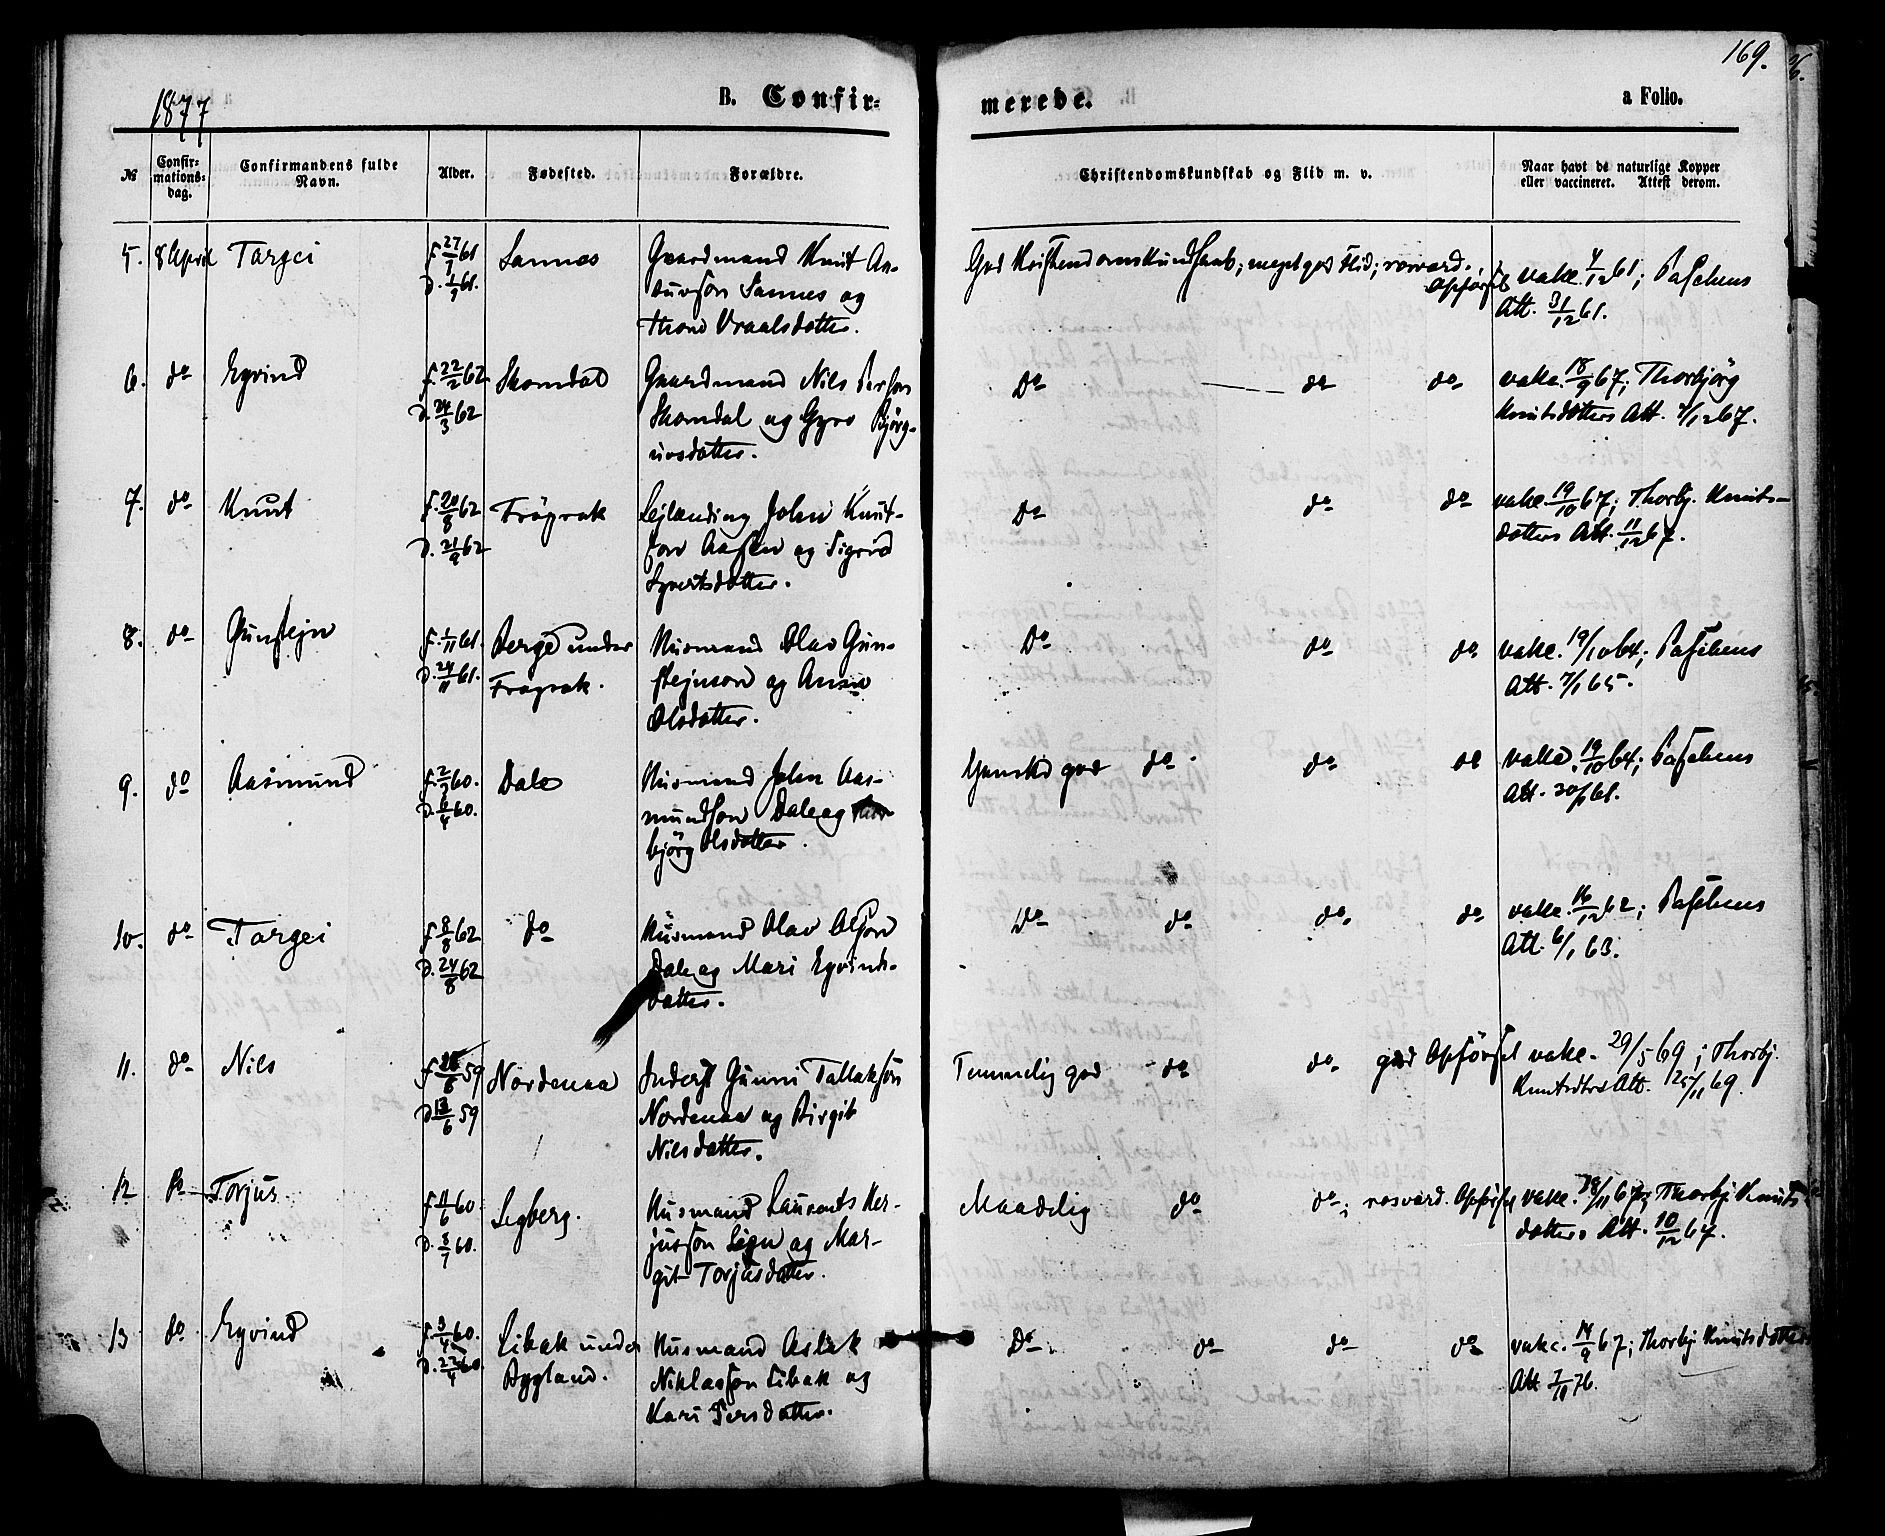 169.
1877
B. Confir-
merede.
a Folio.
№
Confir-
mations-
dag.
Confirmandens fulde
Navn.
Alder.
Fødested.
Forældre.
Christendomskundskab og Flid m. v.
Naar havt de naturlige Kopper
eller vaccineret. Attest derom.
5. 8 April Targei f. 27/7 61 Sannes Gaardmand Knut
d. 1/9 61.
Sannes og
Thone Vraalsdatter.
God Kristendomskundskab; meget god Flid; rosværd.
Opførsel
vakc. 4/12 61; Paschens
Att. 31/12 61.
6. do Eyvind f. 22/2 62 Skomdal Gaardmand Nils Persson
d. 24/3 62 Skomdal og Gyro Bjørg-
uvsdatter.
Do do do
vakc. 18/9 67; Thorbjörg
Knutsdotters Att. 4/12 67.
7. do Knut f. 20/8 62 Frøyrak Lejlænding John Knut-
d. 21/9 62 son Aasen og Sigrid
Syvertsdatter.
Do do do
vakc. 19/10 67; Thorbj. Knuts-
dotters Att. 11/12 67.
8. do Gunstejn f. 1/11 61. Berge under Husmand Olav Gun-
d. 24/11 61. Frøyrak. stejnson og Anne
Olsdatter.
Do do do
vakc. 19/10 64; Paschens
Att. 7/1 65.
9. do Aasmund f. 2/3 60. Dale Husmand John Aas-
d. 6/4 60. mundson Dale og Thor-
björg Olsdatter.
Ganske god do do do
vakc. 19/10 64; Paschens
Att.
10. do Targei f. 8/8 62 do Husmand Olav Olson
d. 24/8 62 Dale og Mari Eyvinds-
datter.
Do do do do
vakc. 16/12 62; Paschens
Att. 6/1 63.
11. do Nils Nordenaa Inderst Gunni Tallakson
d. 13/6 59 Nordenaa og Birgit
Nilsdatter.
Temmelig god do do god Opførsel
vakc. 29/5 69; Thorbj.
Knutsdtrs Att. 25/11 69.
12 do Torjus f. 11/6 60. Legberg. Husmand Laurents Ker-
d. 8/7 60. jusson og Mar-
git Torjusdatter.
Maadelig do do; rosværd. Opførsel
vakc. 18/11 67; Thorbj. Knuts
datters Att. 10/12 67.
13 do Eyvind f. 3/4 60. Libak under Husmand Aslak
d. 22/4 60. Bygland. Niklasson Libak og
Kari Persdatter.
Do. do do do
vakc. 14/9 67; Thorbj Knutsdotters
Att 7/11 76.